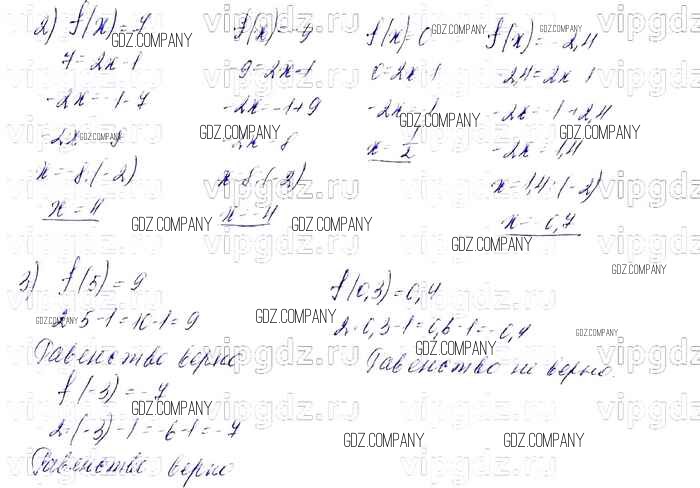 2) f(x) = 7
7 = 2x - 1
-2x = -1 - 7
x = -8 : (-2)
x = 4
f(x) = -9
-9 = 2x - 1
-2x = -1 + 9
x = 8 : (-2)
x = -4
f(x) = 0
0 = 2x - 1
-2x = -1
x = 1/2
f(x) = -2,4
-2,4 = 2x - 1
-2x = -1 + 2,4
-2x = 1,4
x = 1,4 : (-2)
x = -0,7
3) f(5) = 9
2·5-1 = 10-1 = 9
Равенство верно
f(-3) = -7
2·(-3) - 1 = -6-1 = -7
Равенство верно
f(0,3) = 0,4
2·0,3-1 = 0,6-1 = -0,4
Равенство не верно.
GDZ.COMPANY
vipgdz.ru